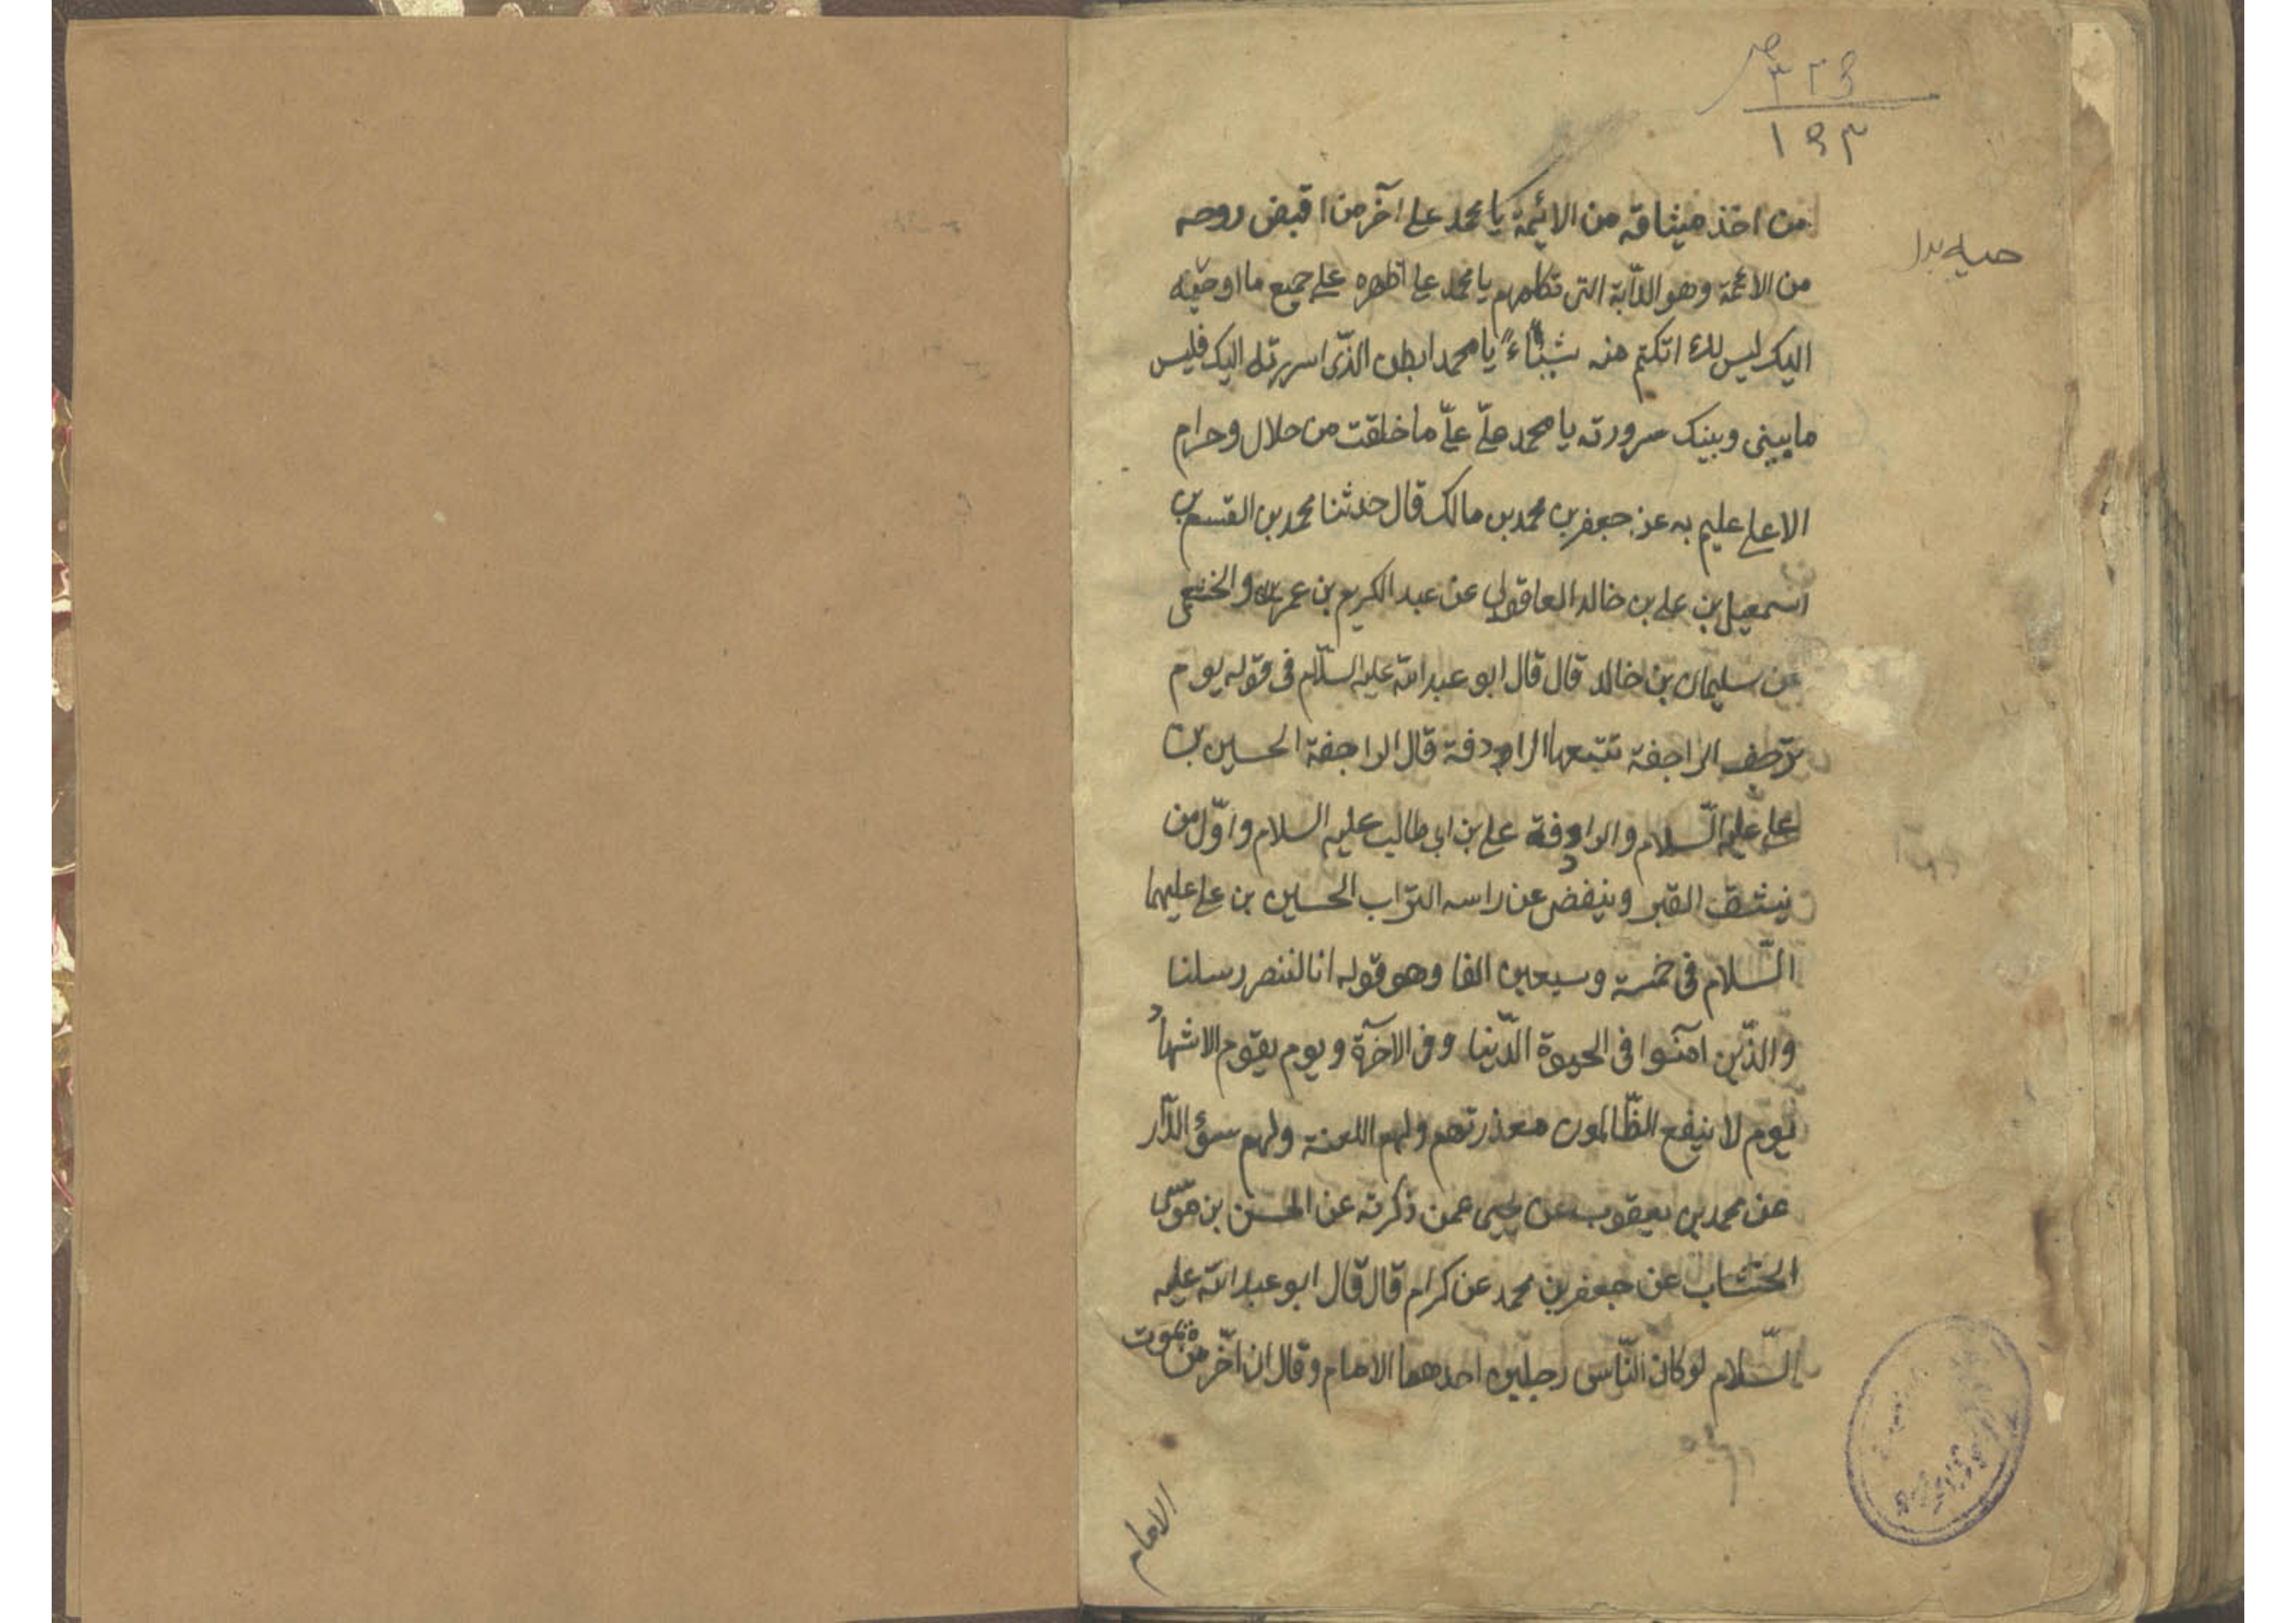 ٣٢٥
١٥٣
من اخذ ميثاقه من الائمة يا محمد علي آخر من اقبض روحه
من الائمة وهو الدآبة التى تكلمهم يا محمد علي اظهره علي جميع ما اوحيه
اليك ليس لك ان تكتم منه شيئاً يا محمد ابطن الذى اسررته اليك فليس
ما بينى وبينك سر دونه يا محمد علىّ علىّ ما خلقت من حلال وحرام
الا علي عليم به عن جعفر بن محمد بن مالك قال حدثنا محمد بن القسم بن
اسمعيل بن علي بن خالد العاقولي عن عبد الكريم بن عمرو الخثعمى
عن سليمان بن خالد قال قال ابو عبد الله عليه السلّام فى قوله يوم
ترجف الراجفة تتبعها الرادفة قال الراجفة الحسين بن
علي عليه السّلام والرادفة علي بن ابي طالب عليه السلام واوّل من
ينشق القبر وينفض عن راسه التراب الحسين بن علي عليهما
السّلام فى خمسة وسبعين الفا وهو قوله انا لننصر رسلنا
والذّين آمنوا فى الحيوة الدّنيا وفى الآخرة ويوم يقوم الاشهاد
يوم لا ينفع الظّالمون معذرتهم ولهم اللعنة ولهم سوء الدّآر
عن محمد بن يعقوب عن يحيى عمن ذكرته عن الحسن بن موسى
الخشاب عن جعفر بن محمد عن كرام قال قال ابو عبد الله عليه
السّلام لو كان النّاس رجلين احدهما الامام وقال ان آخر من يموت
الامام